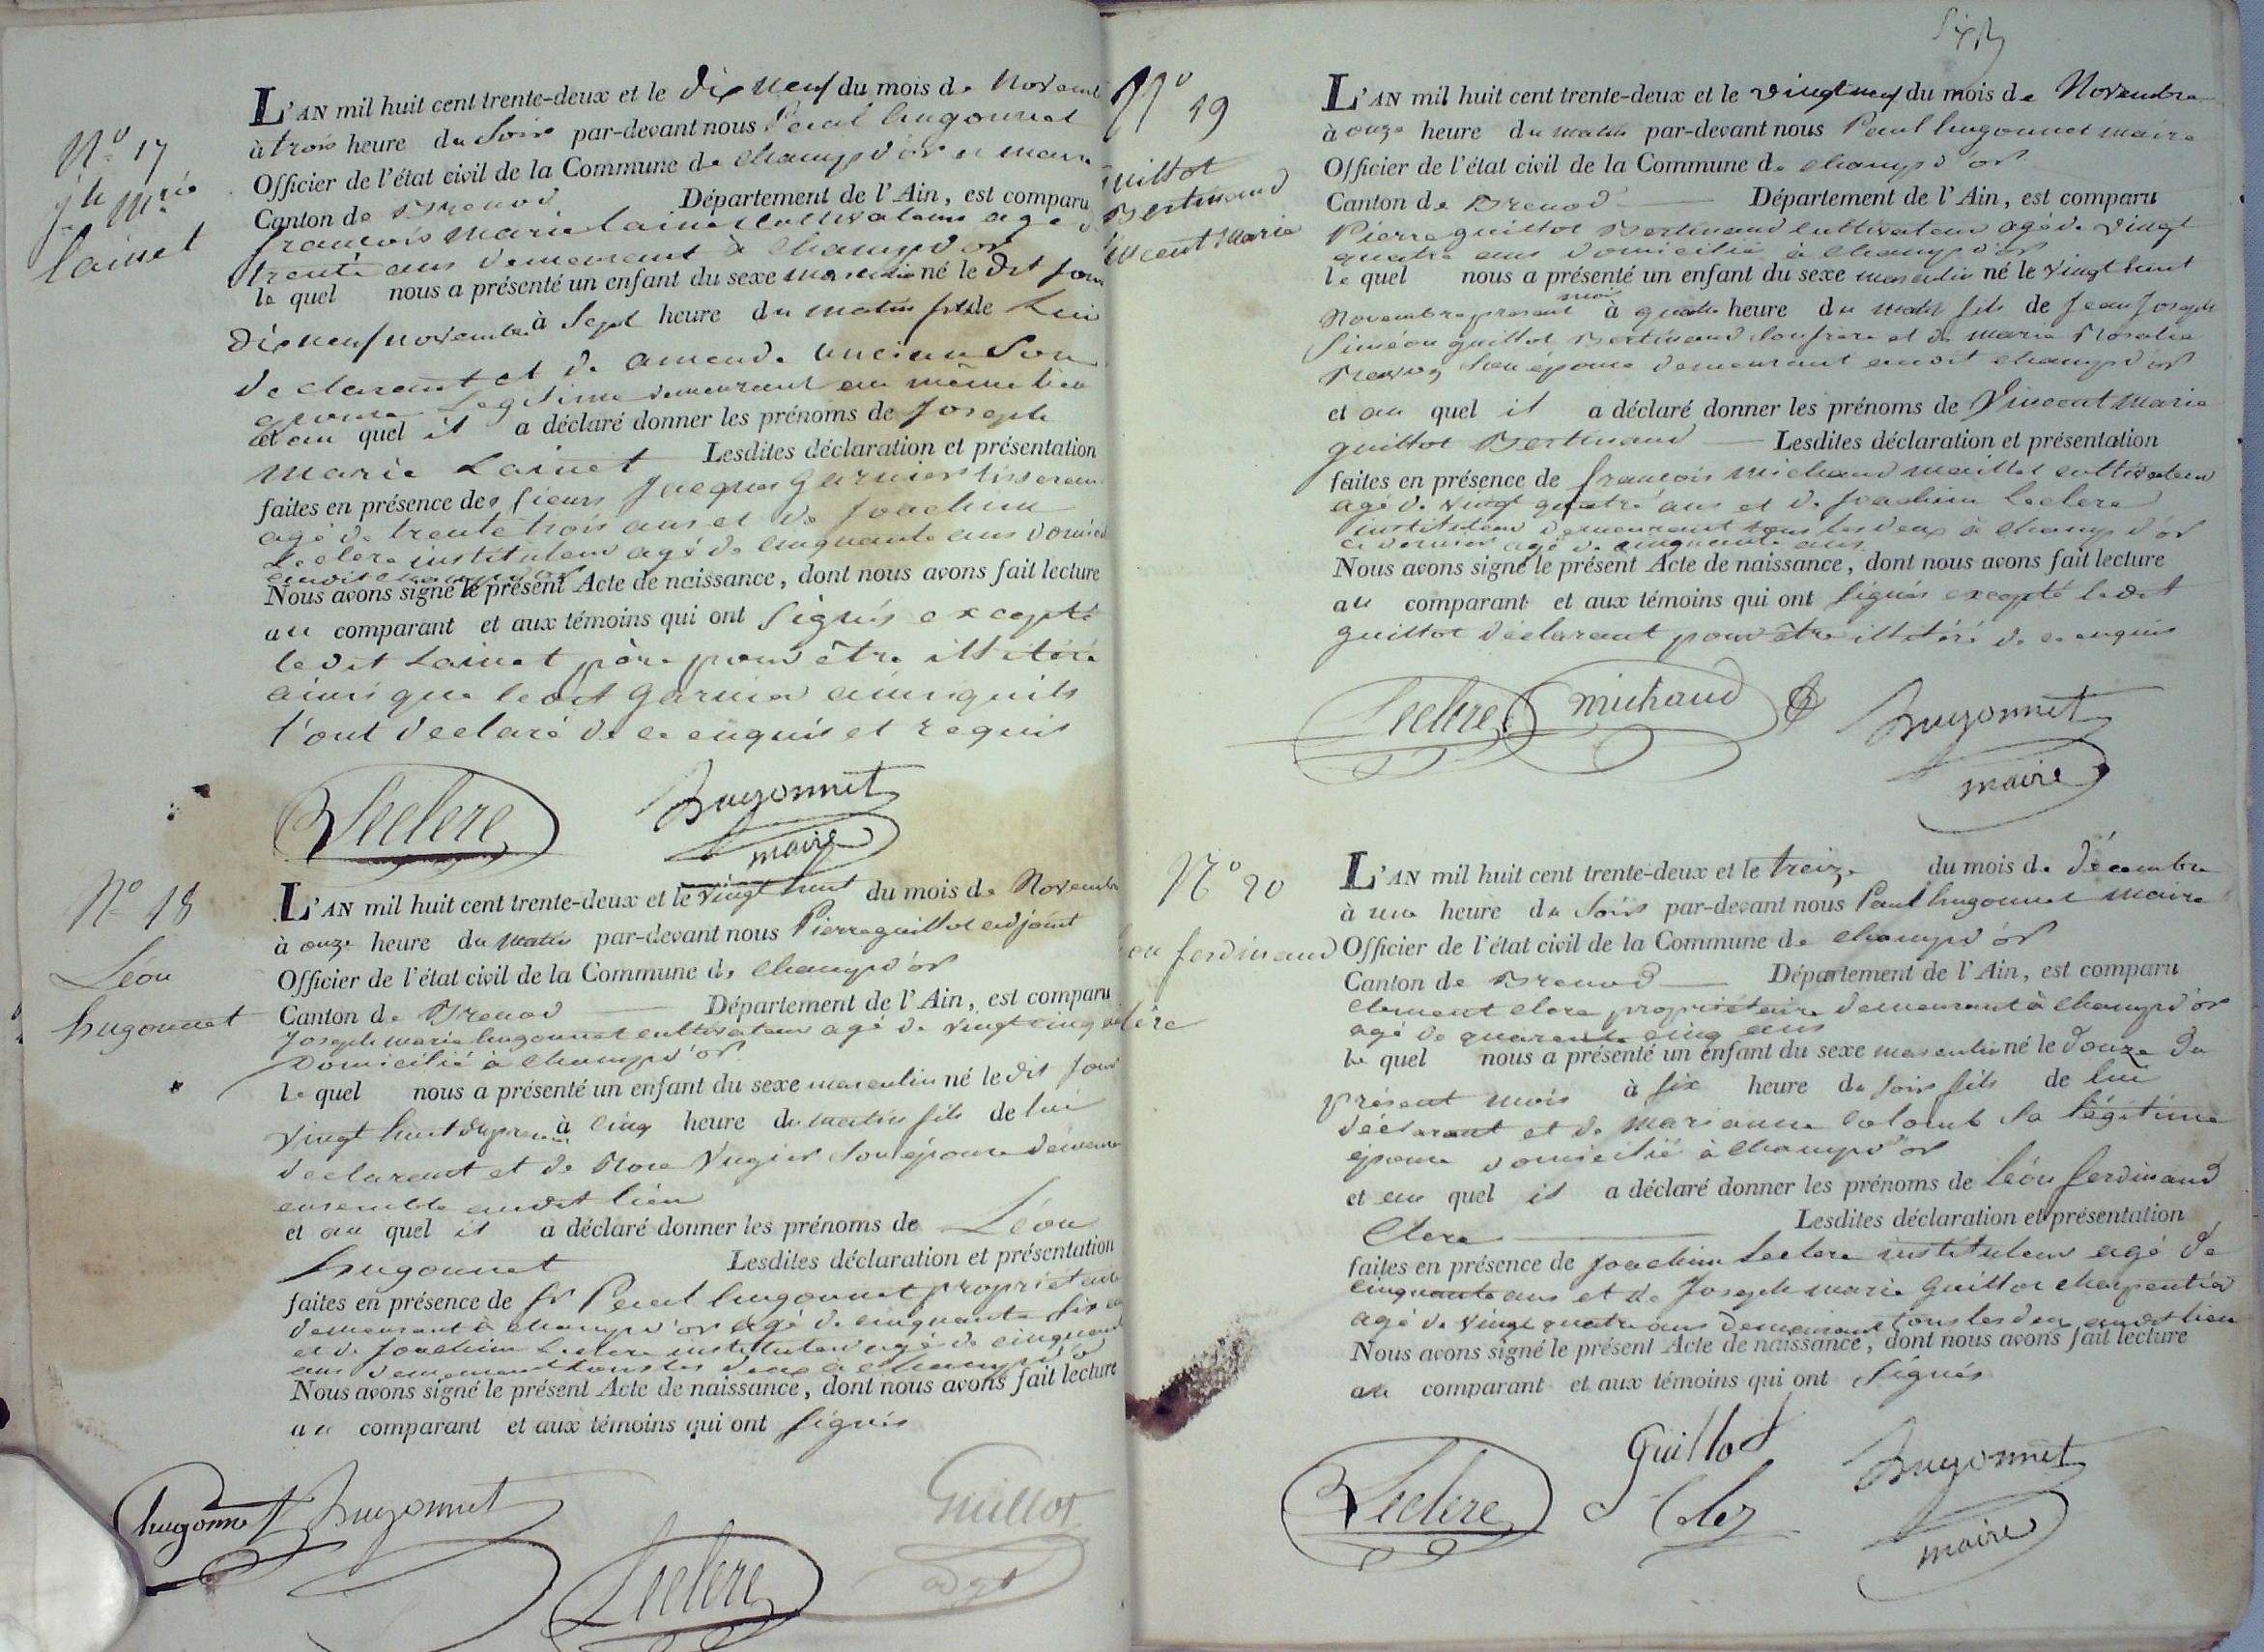 N.º 17
j.h M.rie
lainet
L'AN mil huit cent trente-deux et le Dix neuf du mois de Novemb
à trois heure du Soir par-devant nous Paul hugonnet
Officier de l'état civil de la Commune de champd'or et maire
Canton de Brenod Département de l'Ain, est comparu
francois marie lainet cultivateur agé de
trente ans demeurant à Champd'or
le quel nous a présenté un enfant du sexe masculin né le dit jour
dix neuf novembre à Sept heure du matin fils de Lui
declarant et de Son
epouse Legitime demeurant au même lieu
et au quel il a déclaré donner les prénoms de Joseph
marie Lainet Lesdites déclaration et présentation
faites en présence des sieurs Jacques Garnier tisseran
agé de trente trois ans et de Joachim
Leclere instituteur agé de cinquante ans domicil
audit champd'or
Nous avons signé le présent Acte de naissance, dont nous avons fait lecture
au comparant et aux témoins qui ont Signés excepté
ledit Lainet père pour être illitéré
ainsi que ledit Garnier ainsi quils
l'ont declaré de ce enquis et requis
Leclere Hugonnet
maire
N.º 18
Léon
hugonnet
L'AN mil huit cent trente-deux et le vingt huit du mois de Novembr
à onze heure du matin par-devant nous Pierre guillot adjoint
Officier de l'état civil de la Commune de Champd'or
Canton de Brenod Département de l'Ain, est comparu
Joseph marie hugonnet cultivateur agé de vingt cinq ans
Domicilié à Champd'or
le quel nous a présenté un enfant du sexe masculin né le dit jour
vingt huit du présen à cinq heure du matin fils de lui
declarant et de Rose Vugier Son épouse demeuran
ensemble audit lieu
et au quel il a déclaré donner les prénoms de Léon
hugonnet Lesdites déclaration et présentation
faites en présence de sr Paul hugonnet propriétaire
demeurant à champd'or agé de cinquante six ans
et de Joachim Leclere instituteur agé de cinquante
ans demeurant tous les deux à Champd'or
Nous avons signé le présent Acte de naissance, dont nous avons fait lecture
au comparant et aux témoins qui ont signés
hugonnet Hugonnet
Leclere
Guillot
adjt
Nº 19
guillot
Bertinand
vincent Marie
L'AN mil huit cent trente-deux et le vingt neuf du mois de Novembre
à onze heure du matin par-devant nous Paul hugonnet maire
Officier de l'état civil de la Commune de champd'or
Canton de Brenod Département de l'Ain, est comparu
Pierre guillot Bertinand cultivateur agé de vingt
quatre ans domicilié à champd'or
le quel nous a présenté un enfant du sexe masculin né le vingt huit
Novembre présent mois à quatre heure du matin fils de Jean Joseph
Siméon guillot Bertinand Son frere et de marie Rosalie
Son épouse demeurant audit champd'or
et au quel il a déclaré donner les prénoms de Vincent marie
guillot Bertinand Lesdites déclaration et présentation
faites en présence de francois michaud maillet cultivateur
agé de vingt quatre ans et de Joachim Leclere
instituteur demeurant tous les deux à champd'or
ce dernier agé de cinquante ans
Nous avons signé le présent Acte de naissance, dont nous avons fait lecture
au comparant et aux témoins qui ont signés excepté ledit
guillot déclarant pour être illitéré de ce enquis
Leclere michaud Hugonnet
maire
Nº 20
Léon ferdinand
Clere
L'AN mil huit cent trente-deux et le treize du mois de Décembre
à une heure du Soir par-devant nous Paul hugonnet maire
Officier de l'état civil de la Commune de champd'or
Canton de Brenod Département de l'Ain, est comparu
Clement Clere propriétaire demeurant à Champd'or
agé de quarente cinq ans
le quel nous a présenté un enfant du sexe masculin né le douze du
présent mois à six heure du soir fils de lui
déclarant et de Marianne Colomb sa légitime
épouse domicilié à Champd'or
et au quel il a déclaré donner les prénoms de Léon ferdinand
Clere Lesdites déclaration et présentation
faites en présence de Joachim Leclere instituteur agé de
cinquante ans et de Joseph marie Guillot charpentier
agé de vingt quatre ans demeurant tous les deux audit lieu
Nous avons signé le présent Acte de naissance, dont nous avons fait lecture
au comparant et aux témoins qui ont Signés
Leclere Guillot Hugonnet
maire